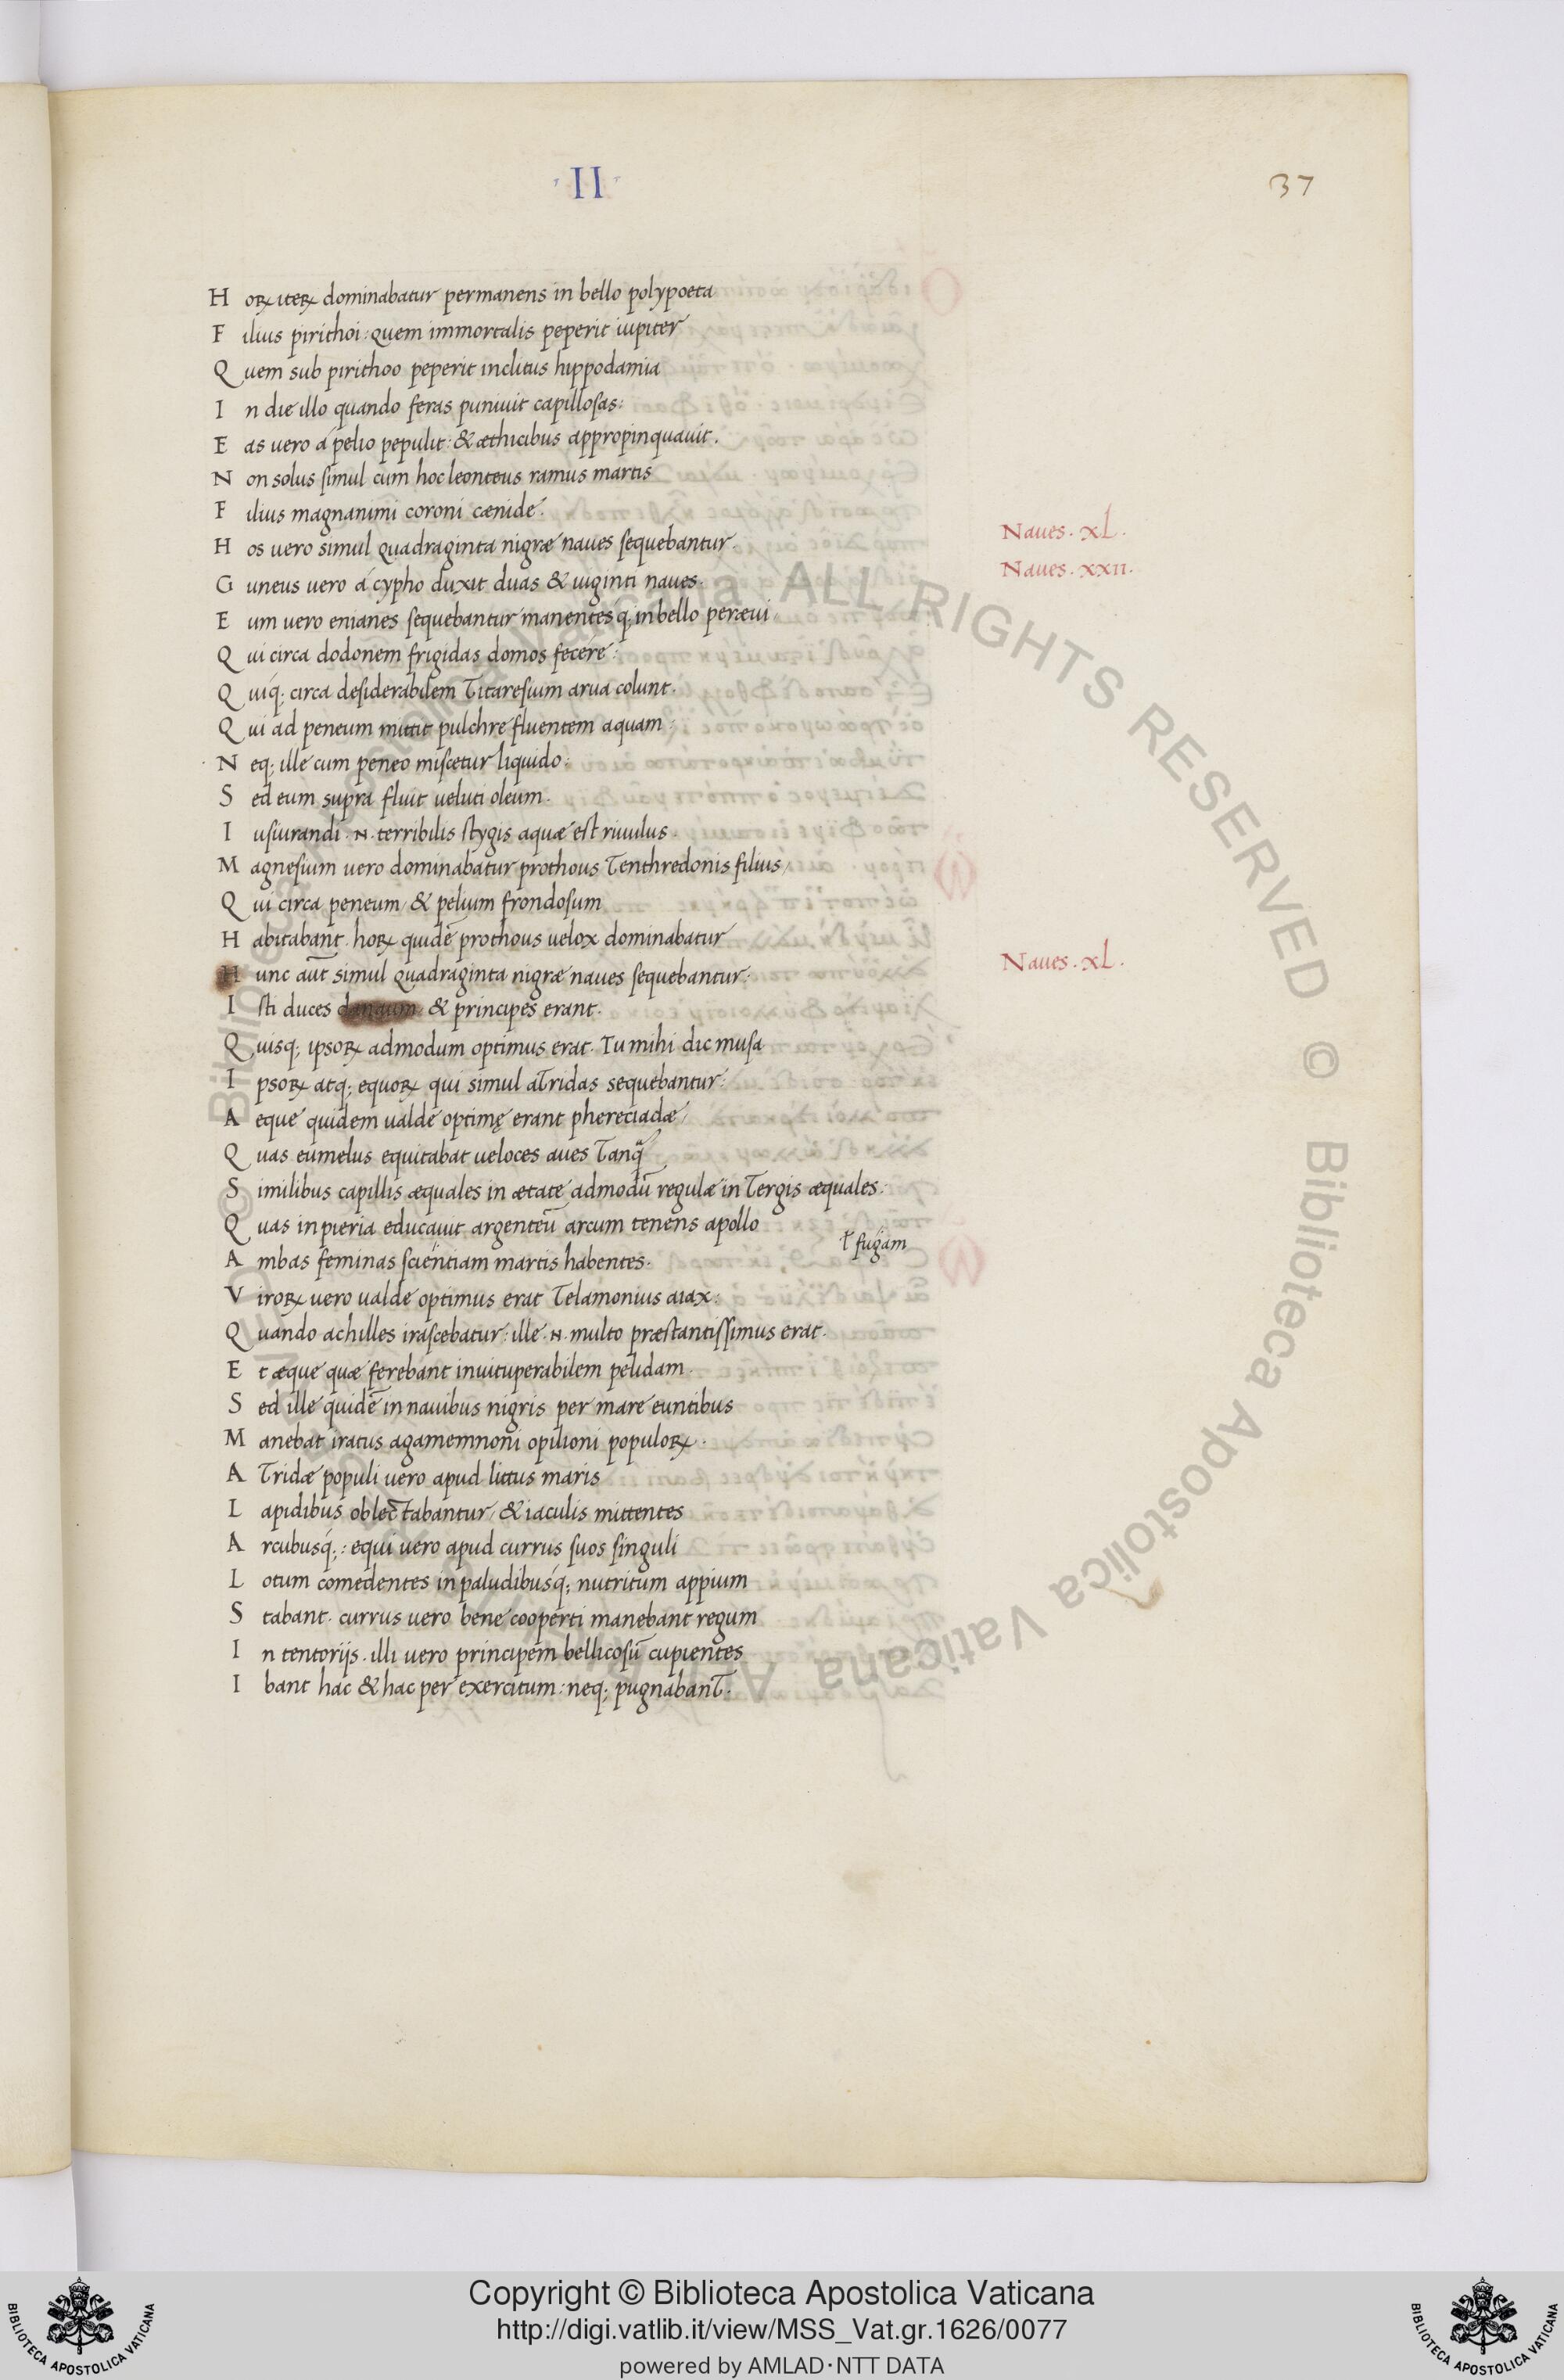 · II ·
37
Horꝝ iterꝝ dominabatur permanens in bello polypoeta
Filius pirithoi: quem immortalis peperit iupiter
Quem sub pirithoo peperit inclitus hippodamia
In die illo quando feras puniuit capillosas:
Eas uero á pelio pepulit: & æthicibus appropinquauit.
Non solus simul cum hoc leonteus ramus martis
Filius magnanimi coroni cænide.
Hos uero simul quadraginta nigræ naues sequebantur.
Naues. xl.
Guneus uero á cypho duxit duas & uiginti naues.
Naues. xxii.
Eum uero enianes sequebantur manentesq; in bello peræui
Qui circa dodonem frigidas domos fecere:
Quiq́; circa desiderabilem Titaresium arua colunt.
Qui ad peneum mittit pulchre fluentem aquam:
Neq; ille cum peneo miscetur liquido:
Sed eum supra fluit ueluti oleum.
Iusiurandi .n. terribilis stygis aquæ est riuulus.
Magnesium uero dominabatur prothous Tenthredonis filius/
Qui circa peneum/ & pelium frondosum
Habitabant. horꝝ quidē prothous uelox dominabatur
Hunc aut̄ simul quadraginta nigræ naues sequebantur.
Naues. xl.
Isti duces danaum/ & principes erant.
Quisq; ipsorꝝ admodum optimus erat. Tu mihi dic musa
Ipsorꝝ atq; equorꝝ qui simul aTridas sequebantur:
Aeque quidem ualde optimę erant phereciadæ/
Quas eumelus equitabat ueloces aues Tanq̃
Similibus capillis æquales in ætate admodū regulæ in Tergis æquales.
Quas in pieria educauit argenteū arcum tenens apollo
ł fugam
Ambas feminas scientiam martis habentes.
Virorꝝ uero ualde optimus erat Telamonius aiax:
Quando achilles irascebatur: ille .n. multo præstantissimus erat.
Et æque quæ ferebant inuituperabilem pelidam.
Sed ille quidē in nauibus nigris per mare euntibus
Manebat iratus agamemnoni opilioni populorꝝ.
ATridæ populi uero apud littus maris
Lapidibus oblectabantur/ & iaculis mittentes
Arcubusq́;: equi uero apud currus suos singuli
Lotum comedentes in paludibusq́; nutritum appium
Stabant. currus uero bene cooperti manebant regum
In tentorijs. illi uero principem bellicosū cupientes
Ibant hac & hac per exercitum: neq; pugnabanT.
© Biblioteca Apostolica Vaticana ALL RIGHTS RESERVED © Biblioteca Apostolica Vaticana
Copyright © Biblioteca Apostolica Vaticana
http://digi.vatlib.it/view/MSS_Vat.gr.1626/0077
powered by AMLAD·NTT DATA
BIBLIOTECA APOSTOLICA VATICANA
BIBLIOTECA APOSTOLICA VATICANA